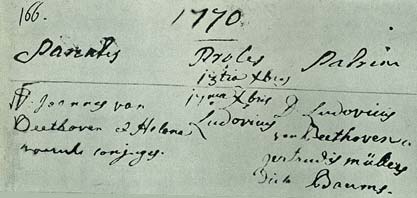 166.
1770.
Parentes Proles Patrini
Xbris
D. Joannes van 17ma Xbris D. Ludovicus
Beethoven & Helena Ludovicus van Beethoven &
conjuges. gertrudis müllers
dicta Baums.